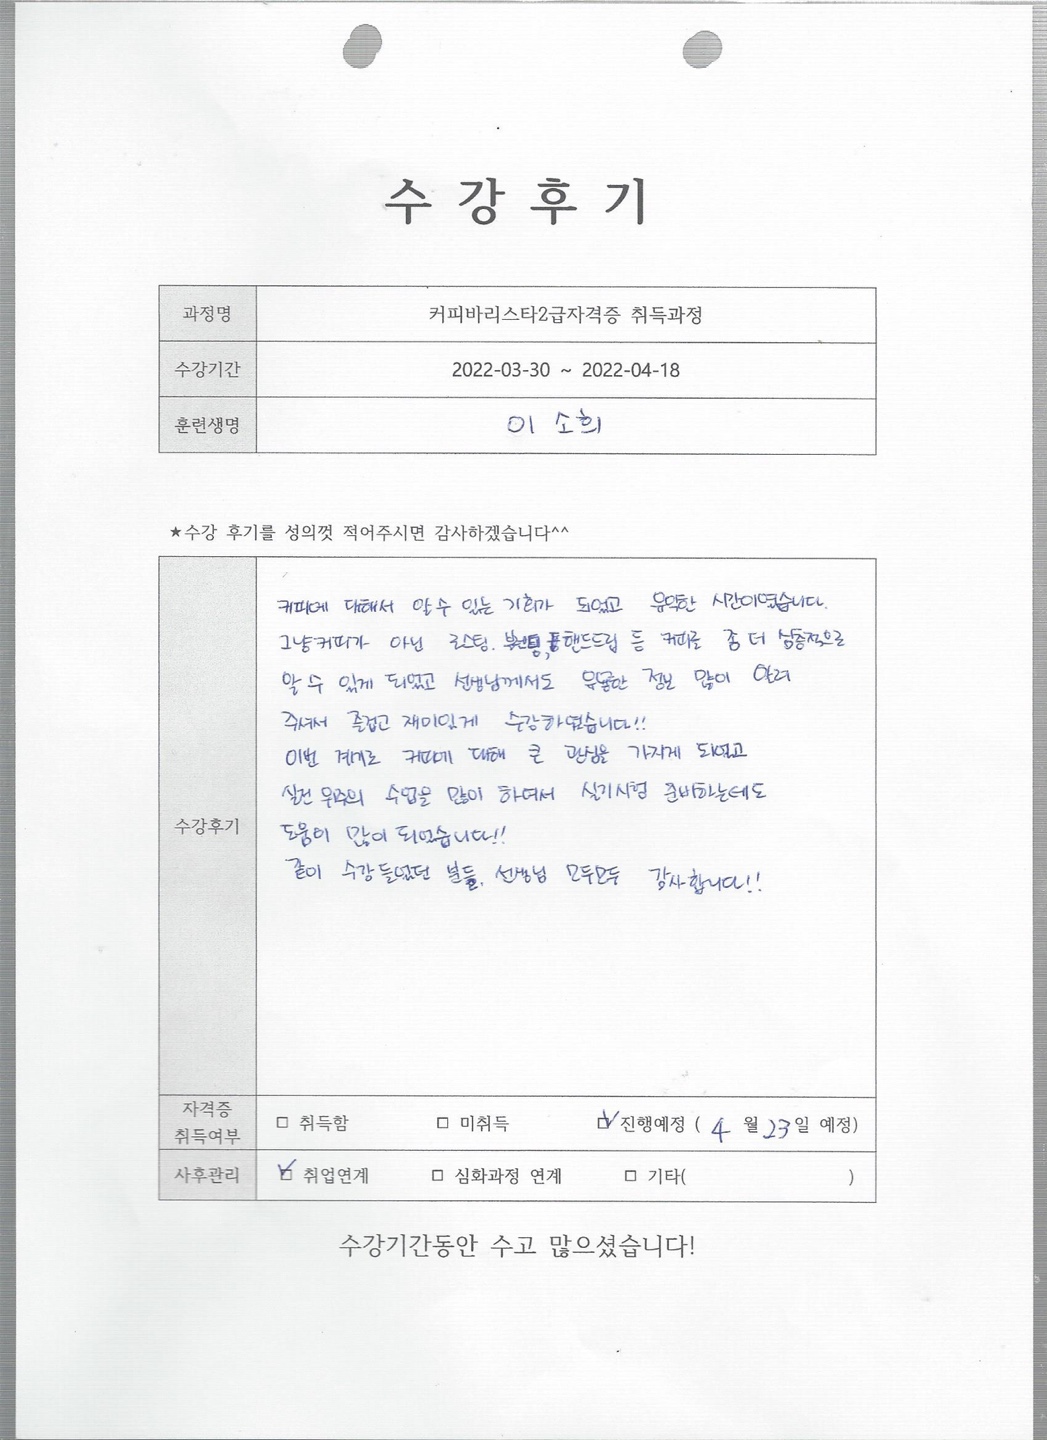 수 강 후 기
과정명 커피바리스타2급자격증 취득과정
수강기간 2022-03-30 ~ 2022-04-18
훈련생명 이 소희
★수강 후기를 성의껏 적어주시면 감사하겠습니다^^
커피에 대해서 알 수 있는 기회가 되었고 유익한 시간이였습니다.
그냥 커피가 아닌 로스팅. 핸드드립 등 커피로 좀 더 심층적으로
알 수 있게 되었고 선생님께서도 유용한 정보 많이 알려
주셔서 즐겁고 재미있게 수강하였습니다!!
이번 계기로 커피에 대해 큰 관심을 가지게 되었고
실전 위주의 수업을 많이 하여서 실기시험 준비하는데도
수강후기
도움이 많이 되었습니다!!
같이 수강 들었던 분들, 선생님 모두모두 감사합니다!!
자격증 취득여부 □ 취득함 □ 미취득 ☑ 진행예정 ( 4 월 23일 예정)
사후관리 ☑ 취업연계 □ 심화과정 연계 □ 기타( )
수강기간동안 수고 많으셨습니다!